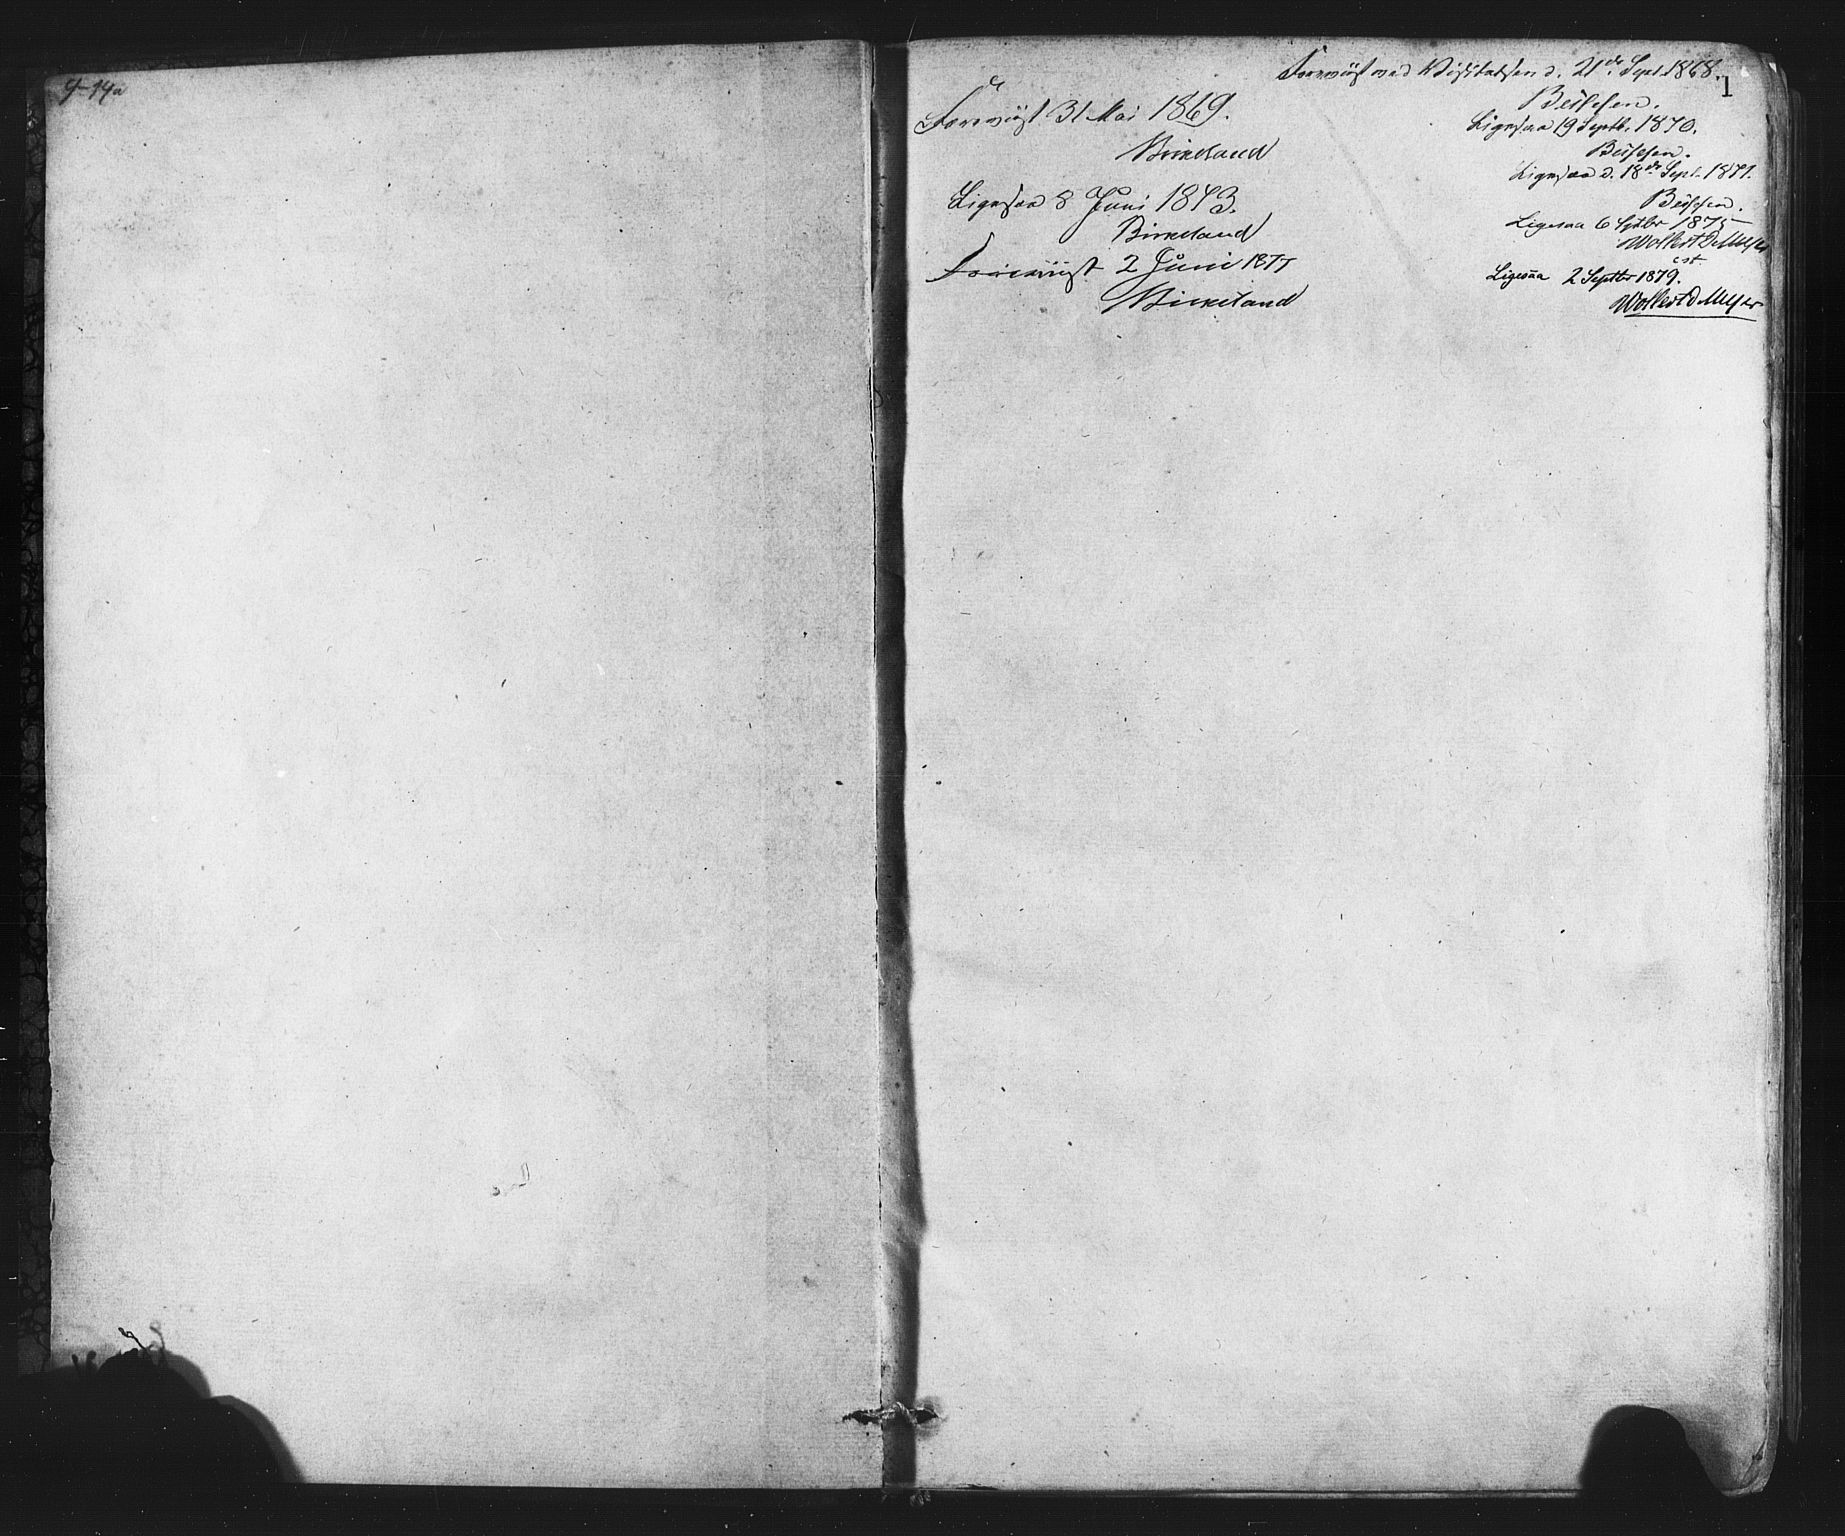 9-14a
1
Forevist 31 Mai 1869.
Birkeland
Ligesaa 8 Juni 1873.
Birkeland
Forevist 2 Juni 1877
Birkeland
Forevist ved Visitatsen d. 21de Sept. 1868.
Ligesaa 19 Septb. 1870.
Ligesaa d. 18de Sept. 1871.
Ligesaa 6 Septbr 1875
Wollert D Meyer
cst.
Ligesaa 2 Septbr 1879.
Wollert D Meyer